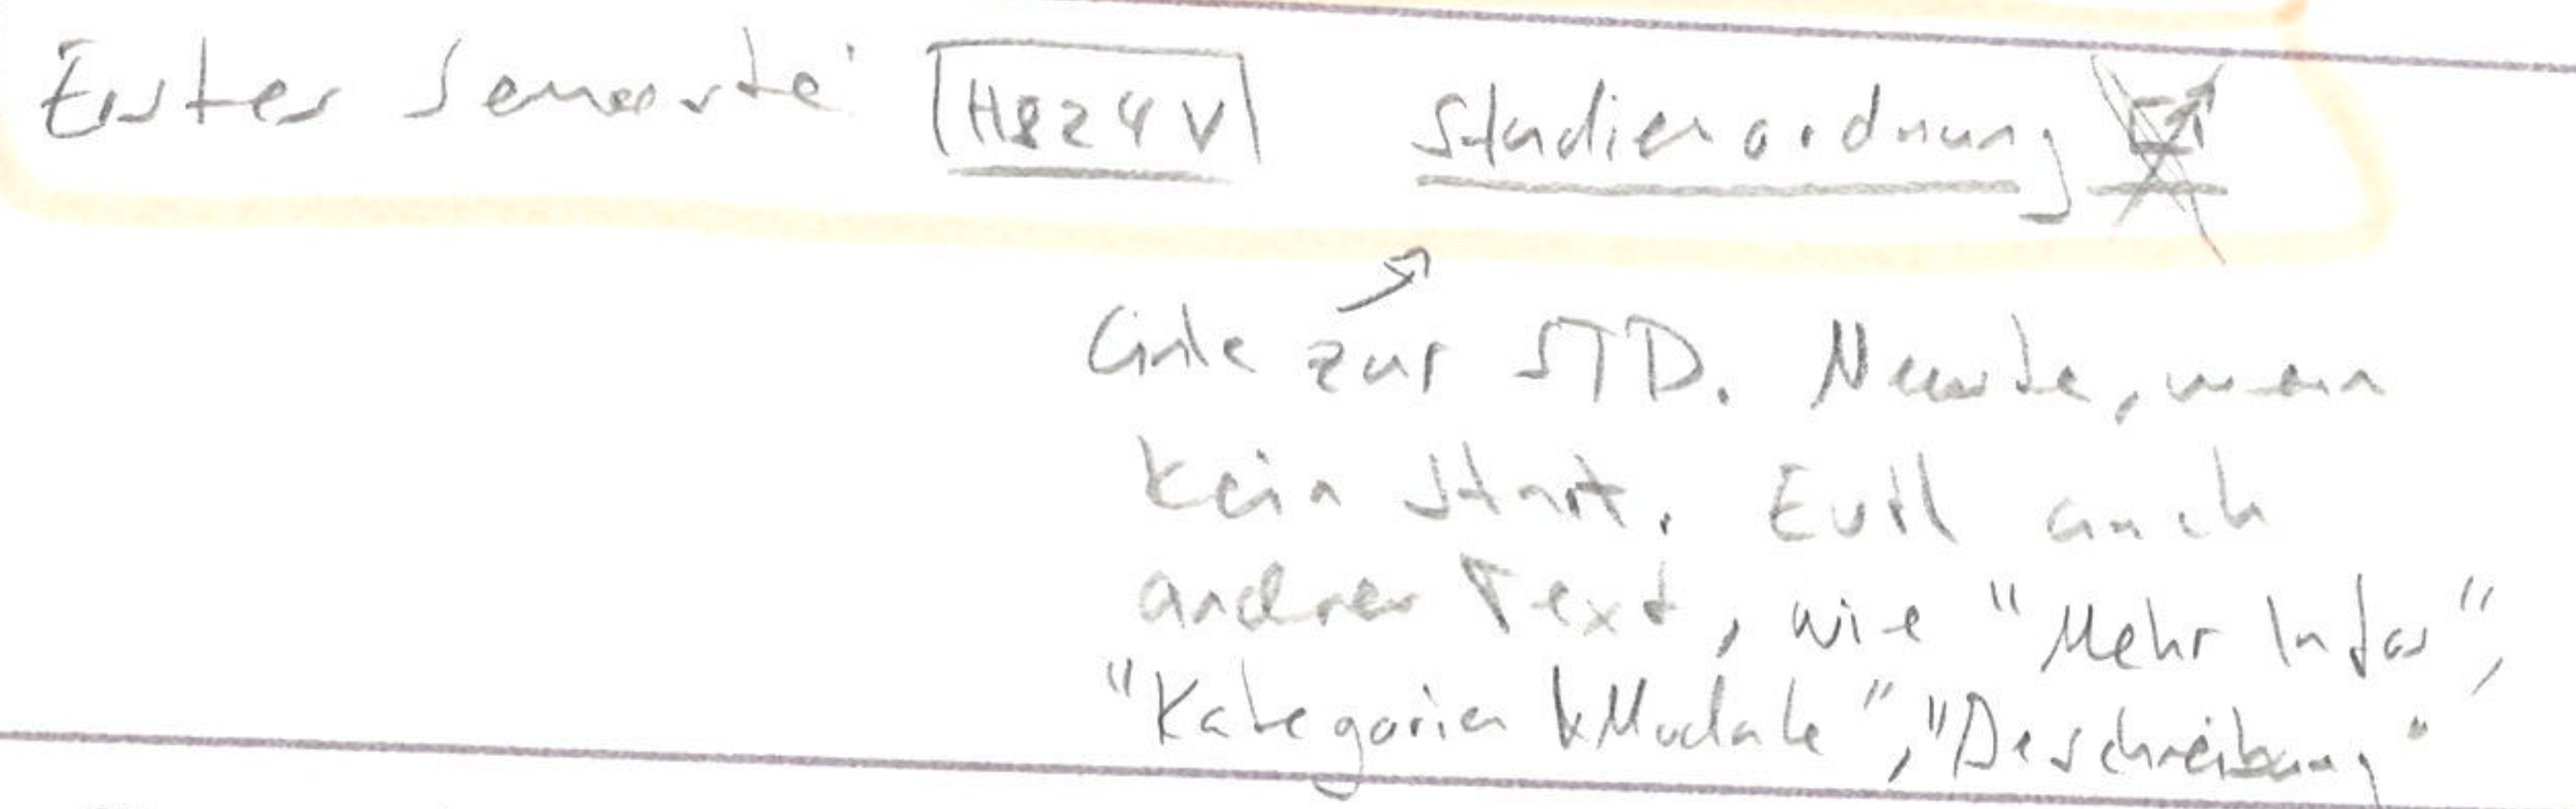 Erster Semester: HS24 V Studienordnung
Link zur STD. Neuste, wenn
kein Start. Evtl auch
andrer Text, wie "Mehr Infos",
"Kategorien & Module", "Beschreibung"